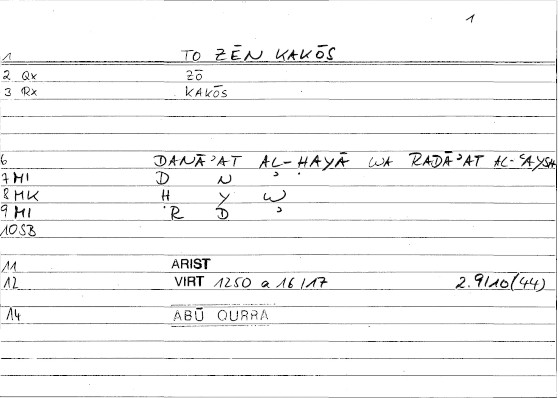 1
1 TO ZĒN KAKŌS
2 Qx ZŌ
3 Rx KAKŌS
6 DANĀʾAT AL-ḤAYĀ WA RADĀʾAT AL-ʿAYSH
7 MI D N ʾ
8 MK H Y W
9 MI R D ʾ
10 SB
11 ARIST
12 VIRT 1250 a 16/17 2.9/10(44)
14 ABŪ QURRA